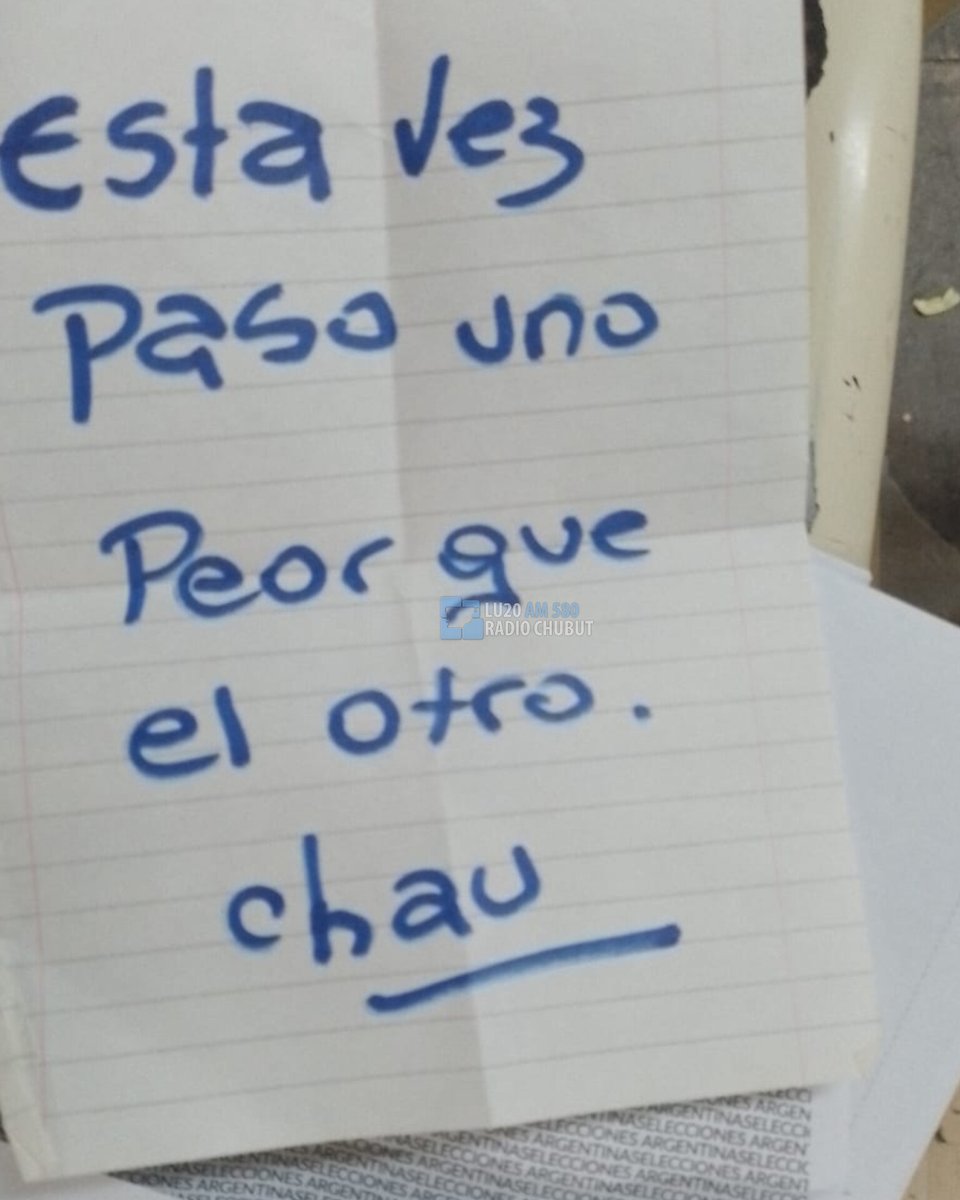 Esta vez
Paso uno
Peor que
el otro.
chau
LU20 AM 580
RADIO CHUBUT
ELECCIONES ARGEN
NTINASELECCIONES ARGEN
ELECCIONES ARGENTINASELECC